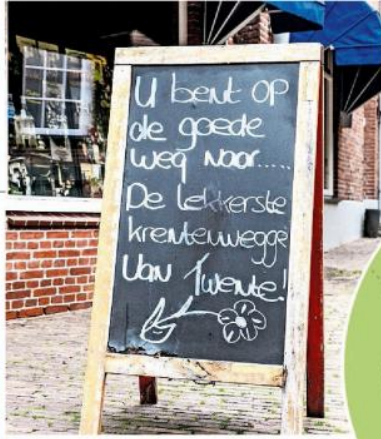 U bent op
de goede
weg naar.....
De lekkerste
krentenwegge
van Twente!